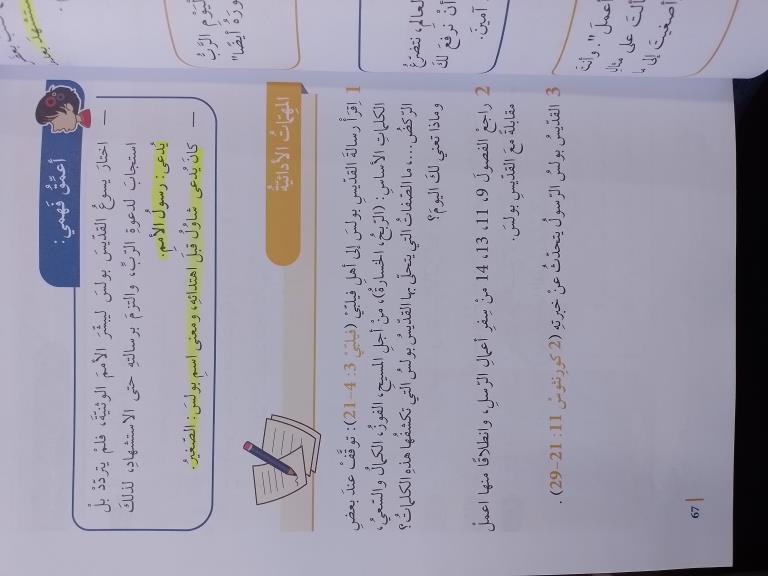 أعمّقُ فَهمي:
— اختارَ يسوعُ القدّيسَ بولسَ ليبشّرَ الأممَ الوثنيّةَ، فلمْ يتردّدْ بلْ
استجابَ لدعوةِ الرّبِّ، والتزمَ برسالتِهِ حتى الاستشهادِ، لذلكَ
يُدعى: رسولُ الأممِ.
— كانَ يُدعى شاوُلُ قبلَ اهتدائِهِ، ومعنى اسمِ بولسَ: الصّغيرُ.
المَهمّاتُ الأدائيّةُ
1 اِقرأْ رسالةَ القدّيسِ بولسَ إلى أهلِ فيلبّيْ (فيلبّيْ 3: 4-21): توقّفْ عندَ بعضِ
الكلماتِ الأساسِ: (الرّبحُ، الخسارةُ)، من أجلِ المسيحِ، الفوزُ، الكمالُ والسّعيُ،
الرّكضُ...، ما الصفاتُ التي يتحلّى بها القدّيسُ بولسُ التي تكشفُها هذهِ الكلماتُ؟
وماذا تعني لكَ اليومَ؟
2 راجعْ الفصولَ 9، 11، 13، 14 منْ سِفرِ أعمالِ الرّسلِ، وانطلاقًا منها اعملْ
مقابلةً معَ القدّيسِ بولسَ.
3 القدّيسُ بولسُ الرّسولُ يتحدّثُ عنْ خبرتِهِ (2 كورنثوسَ 11: 21-29).
67
اليَومَ الرَّبُّ
أيضًا"
العالمِ، نتضرّعُ
أنْ نرفعَ لكَ
آمينَ.
أعملَ". وأنتَ
على مثالِ
أصغيتَ إلى